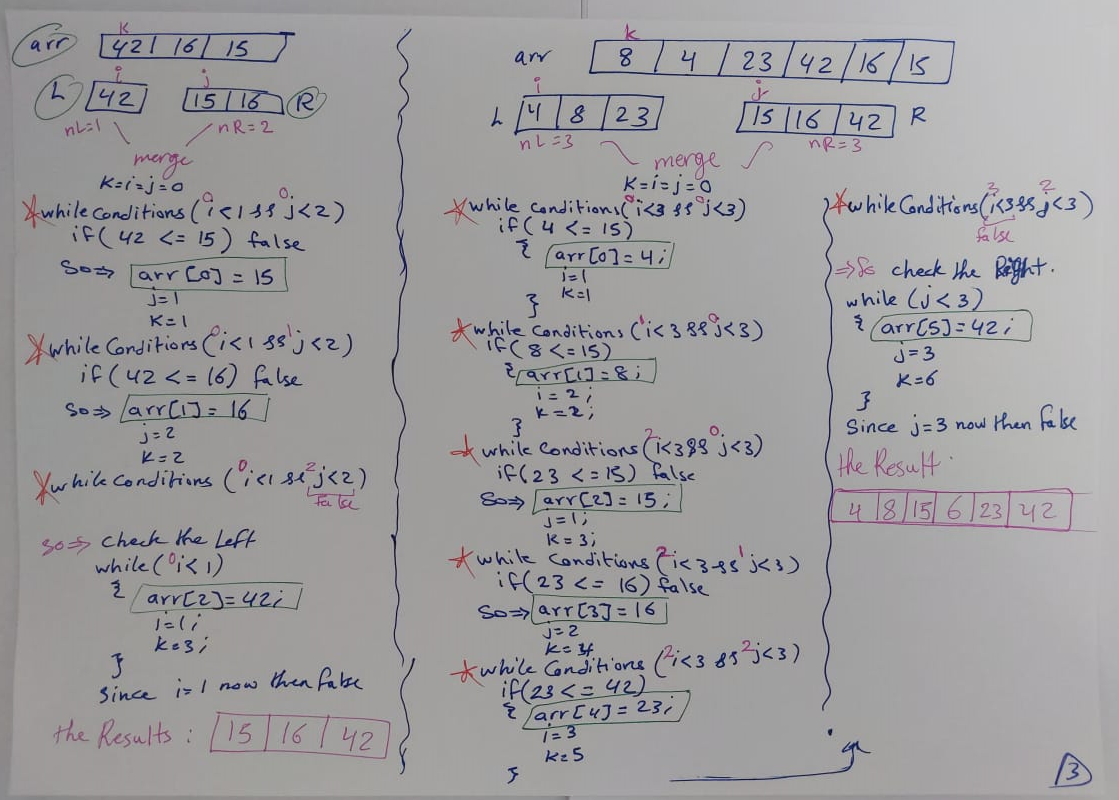 k
arr 42 16 15
i j
L 42 15 16 R
nL=1 nR=2
merge
K=i=j=0
0 0
*while Conditions (i<1 && j<2)
if( 42 <= 15) false
So⇒ arr[0] = 15
j=1
K=1
0 1
*while Conditions (i<1 && j<2)
if( 42 <= 16) false
So⇒ arr[1] = 16
j=2
K=2
0 2
*while Conditions (i<1 && j<2)
false
so⇒ check the Left
while(0 i<1)
{ arr[2]=42;
i=1;
k=3;
}
Since i=1 now then false
the Results: 15 16 42
k
arr 8 4 23 42 16 15
i j
L 4 8 23 15 16 42 R
nL=3 nR=3
merge
K=i=j=0
0 0
*while Conditions(i<3 && j<3)
if( 4 <= 15)
{ arr[0]=4;
i=1
k=1
}
1 0
*while Conditions (i<3 && j<3)
if( 8 <= 15)
{ arr[1]=8;
i=2;
k=2;
}
2 0
*while Conditions (i<3 && j<3)
if(23 <= 15) false
So⇒ arr[2]= 15;
j=1;
K=3;
2 1
*while Conditions (i<3 && j<3)
if(23 <= 16) false
So⇒ arr[3]=16
j=2
K=4
2 2
*while Conditions (i<3 && j<3)
if(23 <= 42)
{ arr[4]=23;
i=3
K=5
}
3 2
*while Conditions(i<3 && j<3)
false
⇒So check the Right.
while (j<3)
{ arr[5]=42;
j=3
K=6
}
Since j=3 now then false
the Result.
4 8 15 6 23 42
3